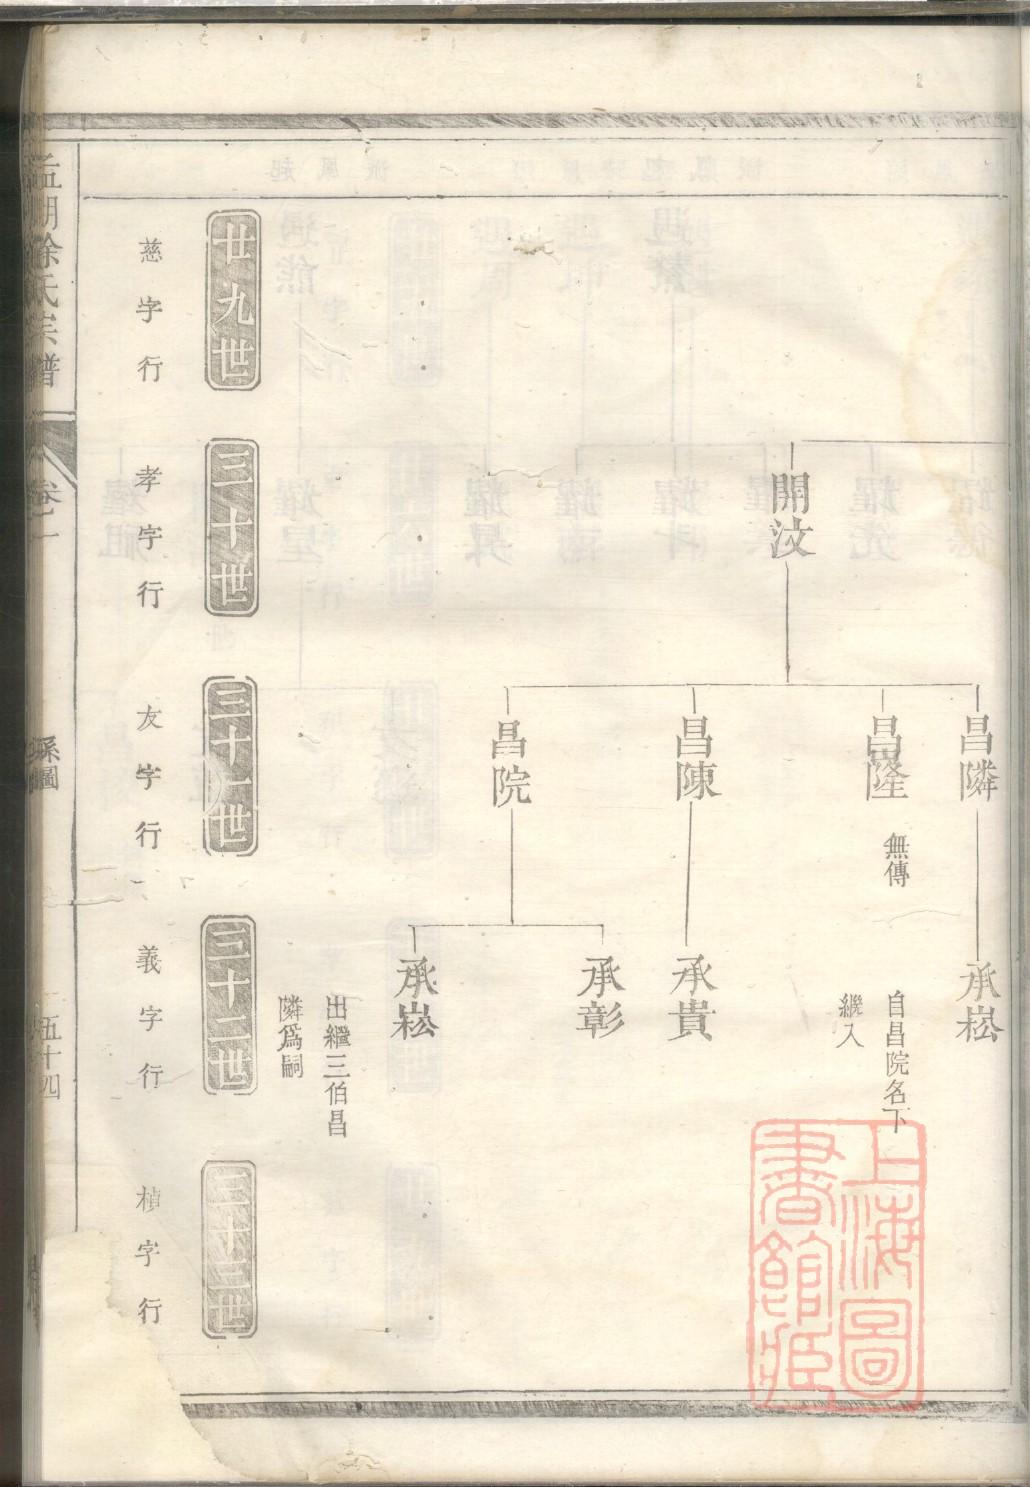 開汶
昌隣
昌窿
無傳
昌陳
昌院
承崧
自昌院名下
繼入
承貴
承彰
承崧
出繼三伯昌
隣爲嗣
廿九世
三十世
三十一世
三十二世
三十三世
慈字行
孝字行
友字行
義字行
楨字行
徐氏宗譜
卷一
系圖
五十四
上海圖
書館藏